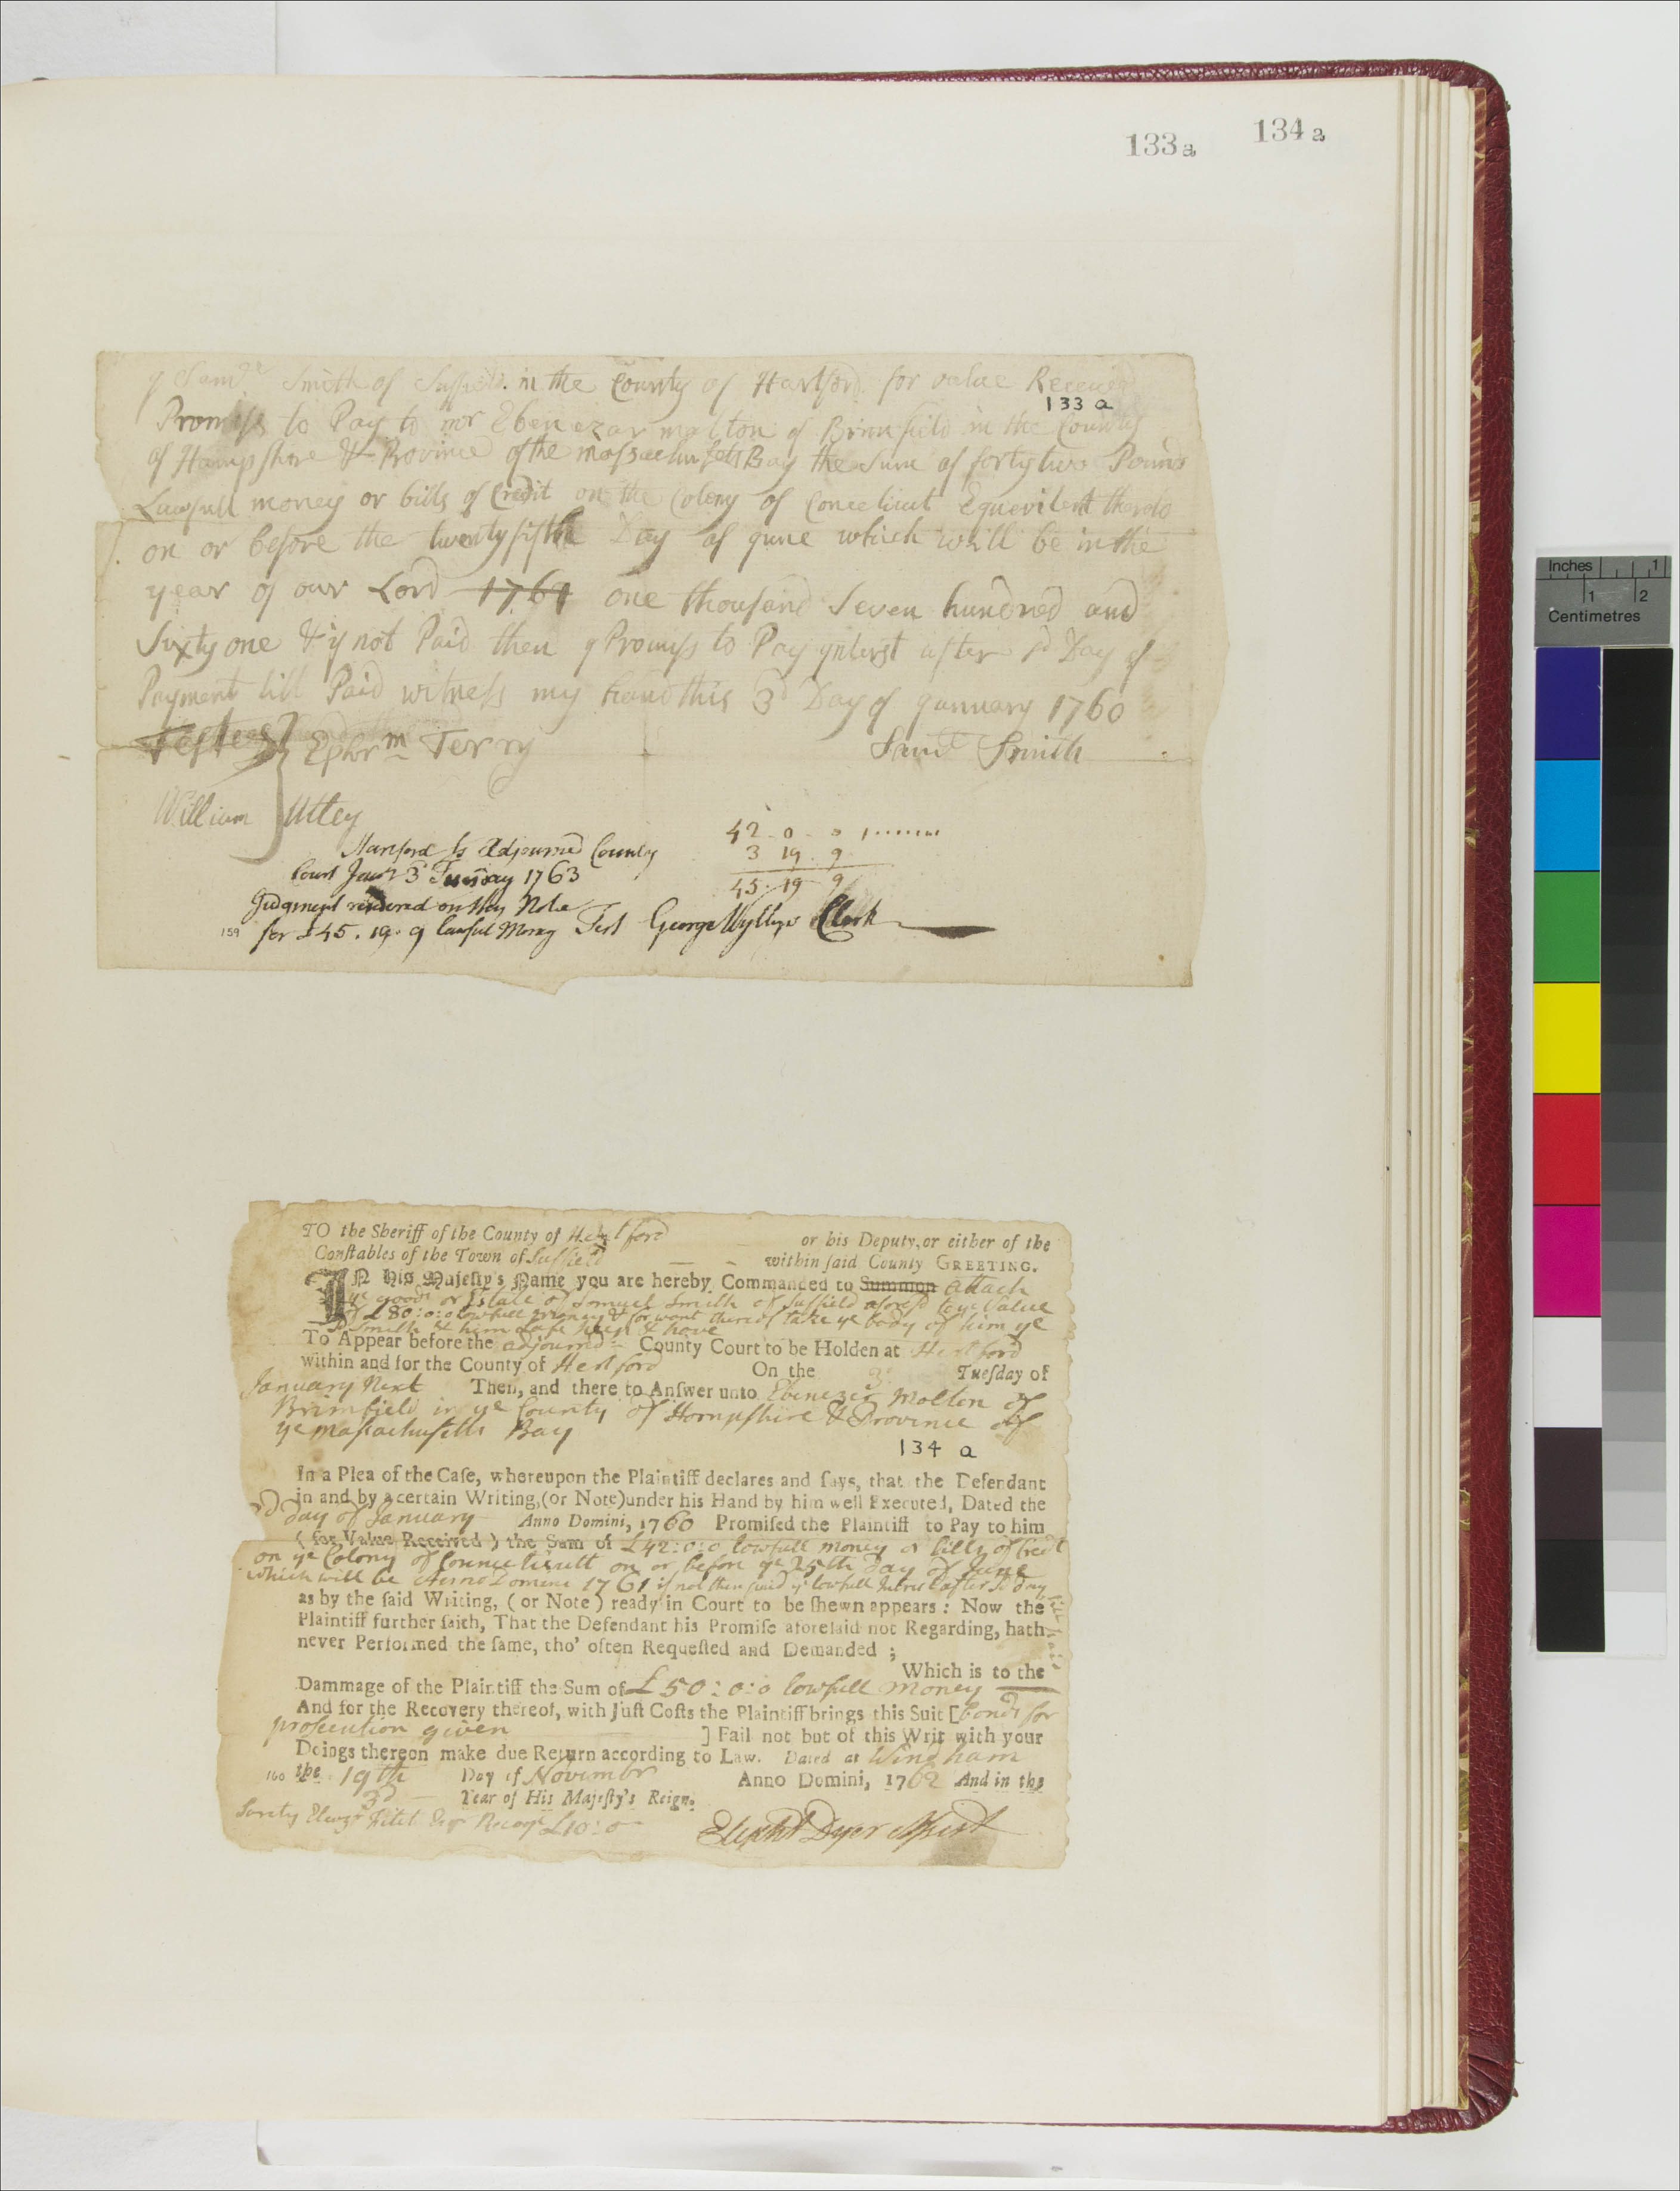 133a 134a
I Saml Smith of Suffield in the County of Hartford for value Received
133 a
Promiss to Pay to mr Ebenezar molton of Brimfield in the County
of Hampshire & Province of the massachusets Bay the Sum of forty two Pounds
Lawfull money or bills of Credit on the Colony of Conecticut Equevilent thereto
on or before the twenty fifth Day of june which will be in the
year of our Lord 1761 one thousand Seven hundred and
Sixty one & if not Paid then I Promiss to Pay intrest after sd Day of
Payment till Paid witness my hand this 3d Day of january 1760
Testes Ephrm Terry Saml Smith
William Utley
42 - 0 - 0
Hartford Ss Adjourned County
3 19 9
Court Janry 3d Tuesday 1763
45 . 19 9
Judgment rendered on this Note
159 for £45 . 19 . 9 lawful Money Test George Wyllys Clerk
TO the Sheriff of the County of Hartford or his Deputy, or either of the
Constables of the Town of Suffield within said County GREETING.
IN His Majesty's Name you are hereby Commanded to Summon attach
ye goods or Estate of Samuel Smith of Suffield aforesd to ye Value
of £80:0:0 lawfull money & for want thereof take ye body of him ye
sd Smith & him safe keep & have
To Appear before the adjournd County Court to be Holden at Hertford
within and for the County of Hertford On the 3d Tuesday of
January Next Then, and there to Answer unto Ebenezer Molton of
Brimfield in ye County of Hampshire & Province of
ye Massachusetts Bay
134 a
In a Plea of the Case, whereupon the Plaintiff declares and says, that the Defendant
in and by a certain Writing, (or Note) under his Hand by him well Executed, Dated the
3d day of January Anno Domini, 1760 Promised the Plaintiff to Pay to him
( for Value Received ) the Sum of £42:0:0 lawfull money or bills of Credt
on ye Colony of Connecticutt on or before ye 25th day of June
which will be Anno Domini 1761 if not then paid ye lawfull Intrest after sd day
till paid
as by the said Writing, ( or Note ) ready in Court to be shewn appears : Now the
Plaintiff further saith, That the Defendant his Promise aforesaid not Regarding, hath
never Performed the same, tho' often Requested and Demanded ;
Which is to the
Dammage of the Plaintiff the Sum of £50:0:0 lawfull money
And for the Recovery thereof, with Just Costs the Plaintiff brings this Suit [bonds for
prosecution given ] Fail not but of this Writ with your
Doings thereon make due Return according to Law. Dated at Windham
160 the 19th Day of Novembr Anno Domini, 1762 And in the
3d Year of His Majesty's Reign.
Surety £10:0
Elipht Dyer Assist
Inches 1
1 2
Centimetres